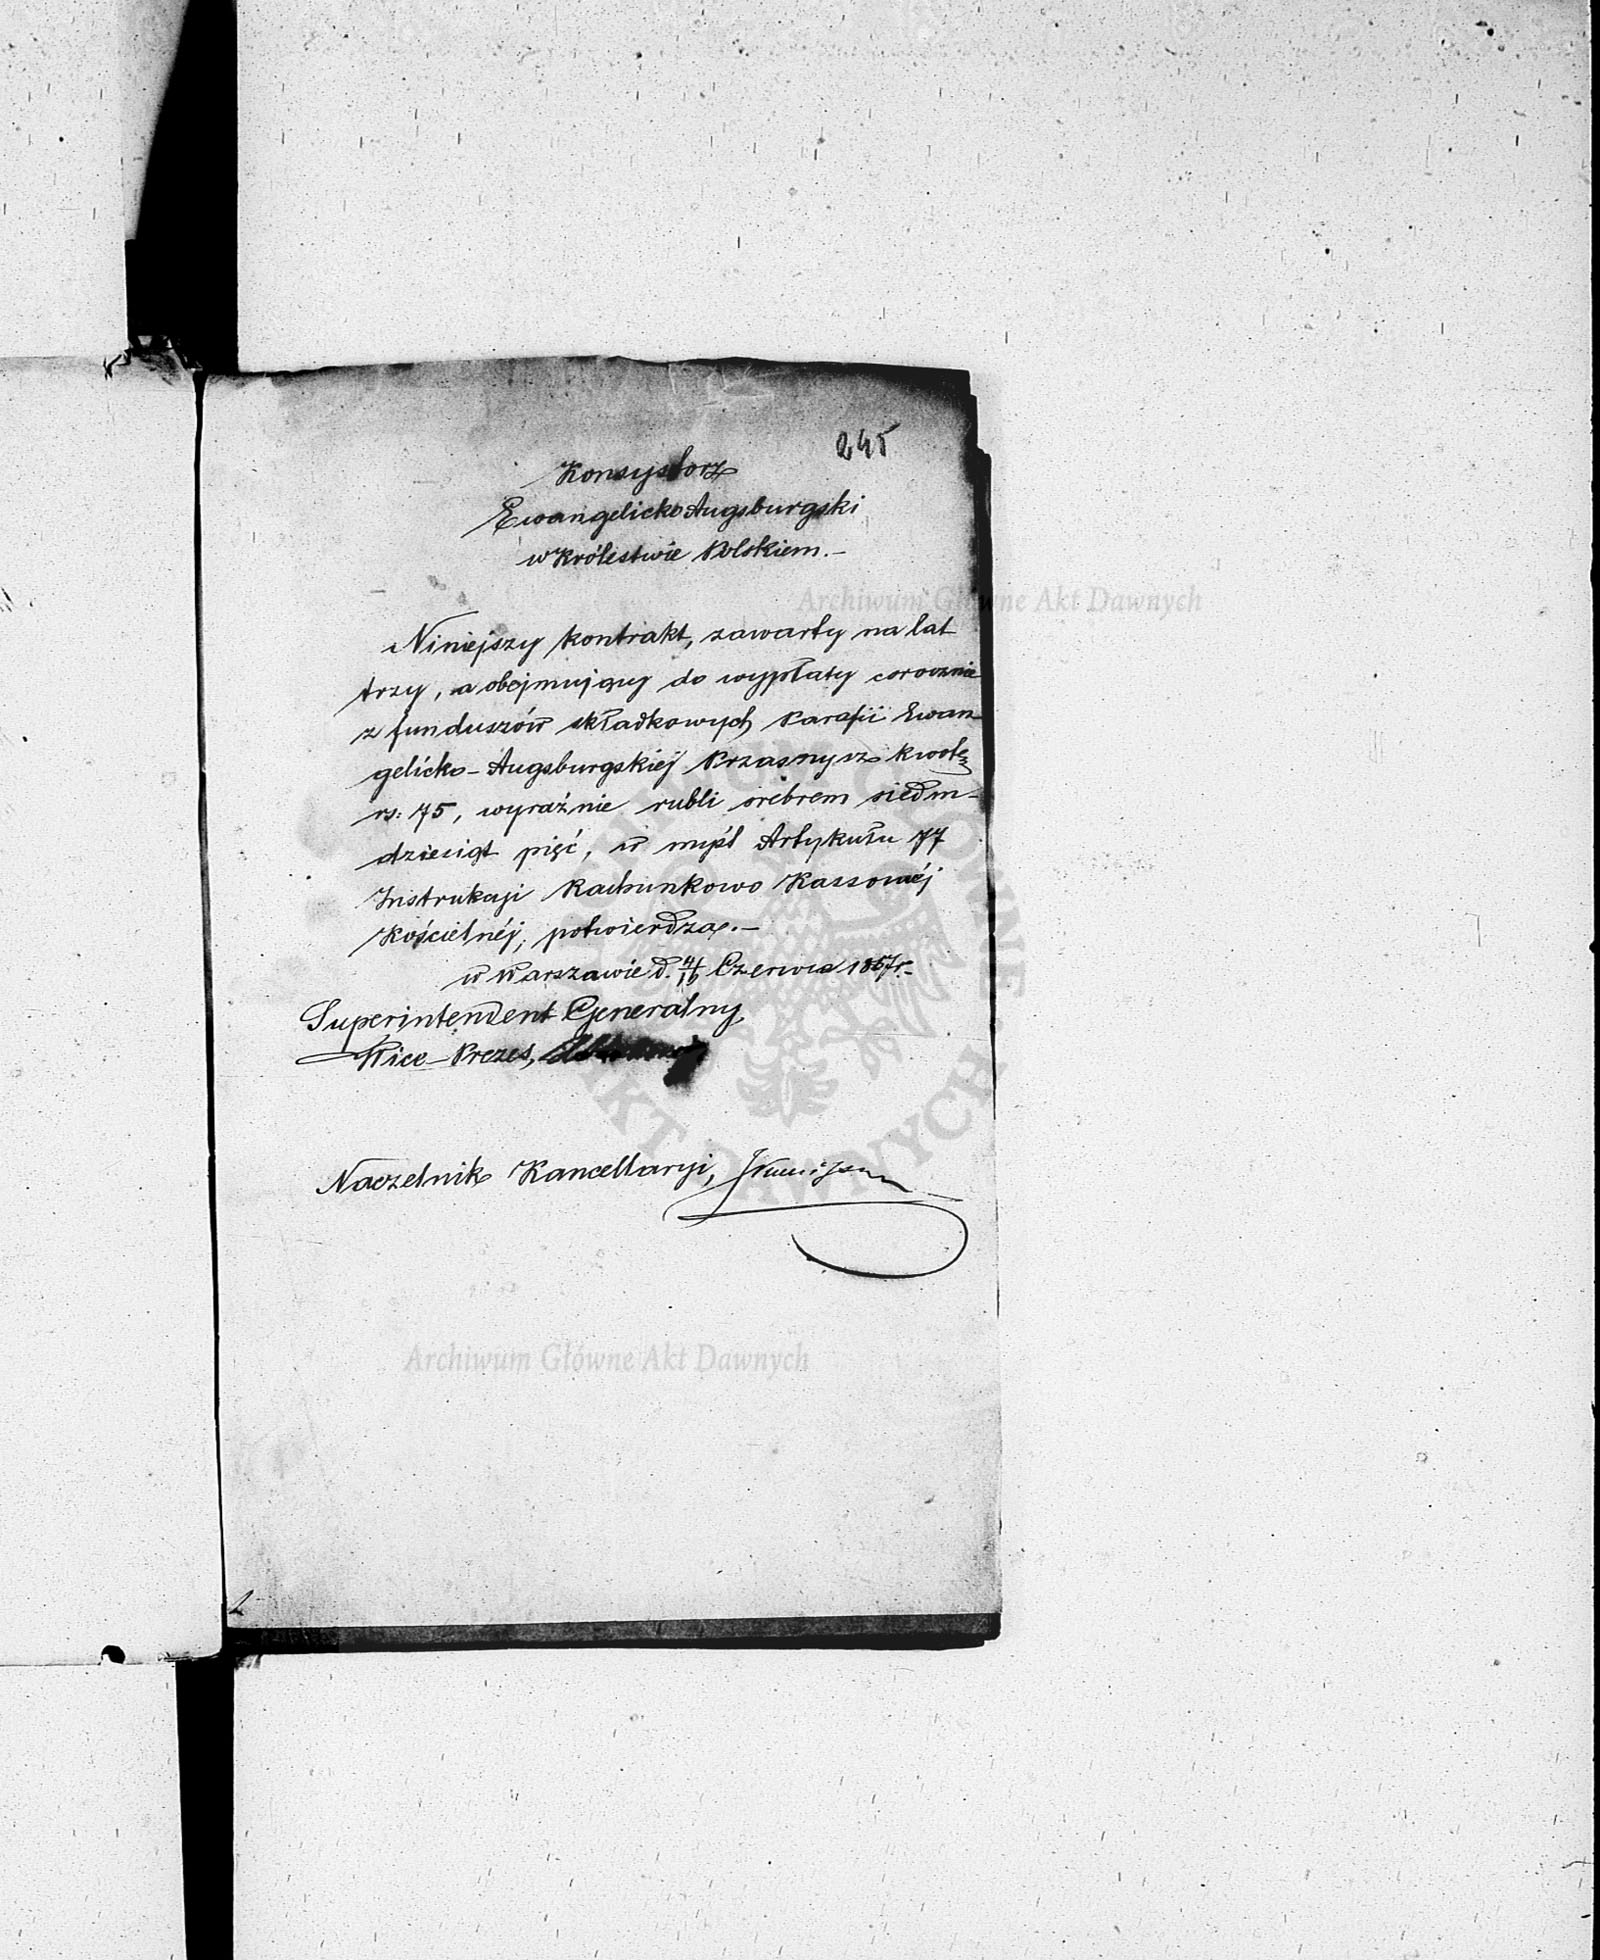 245
Konsystorz
Ewangelicko Augsburgski
w Królestwie Polskiem.—
Archiwum Główne Akt Dawnych
Niniejszy kontrakt, zawarty na lat
trzy, a obejmujący do wypłaty corocznie
z funduszów składkowych Parafii Ewan-
gelicko-Augsburgskiéj Przasnysz kwotę
rs: 75, wyraźnie rubli srebrem siedm-
dziesiąt pięć, w myśl Artykułu 77
Instrukcji Rachunkowo Kassowéj
Kościelnéj, potwierdza.—
w Warszawie d. 4/16 Czerwca 1857r.
Superintendent Generalny,
Wice-Prezes,
Naczelnik Kancellaryi,
Archiwum Główne Akt Dawnych